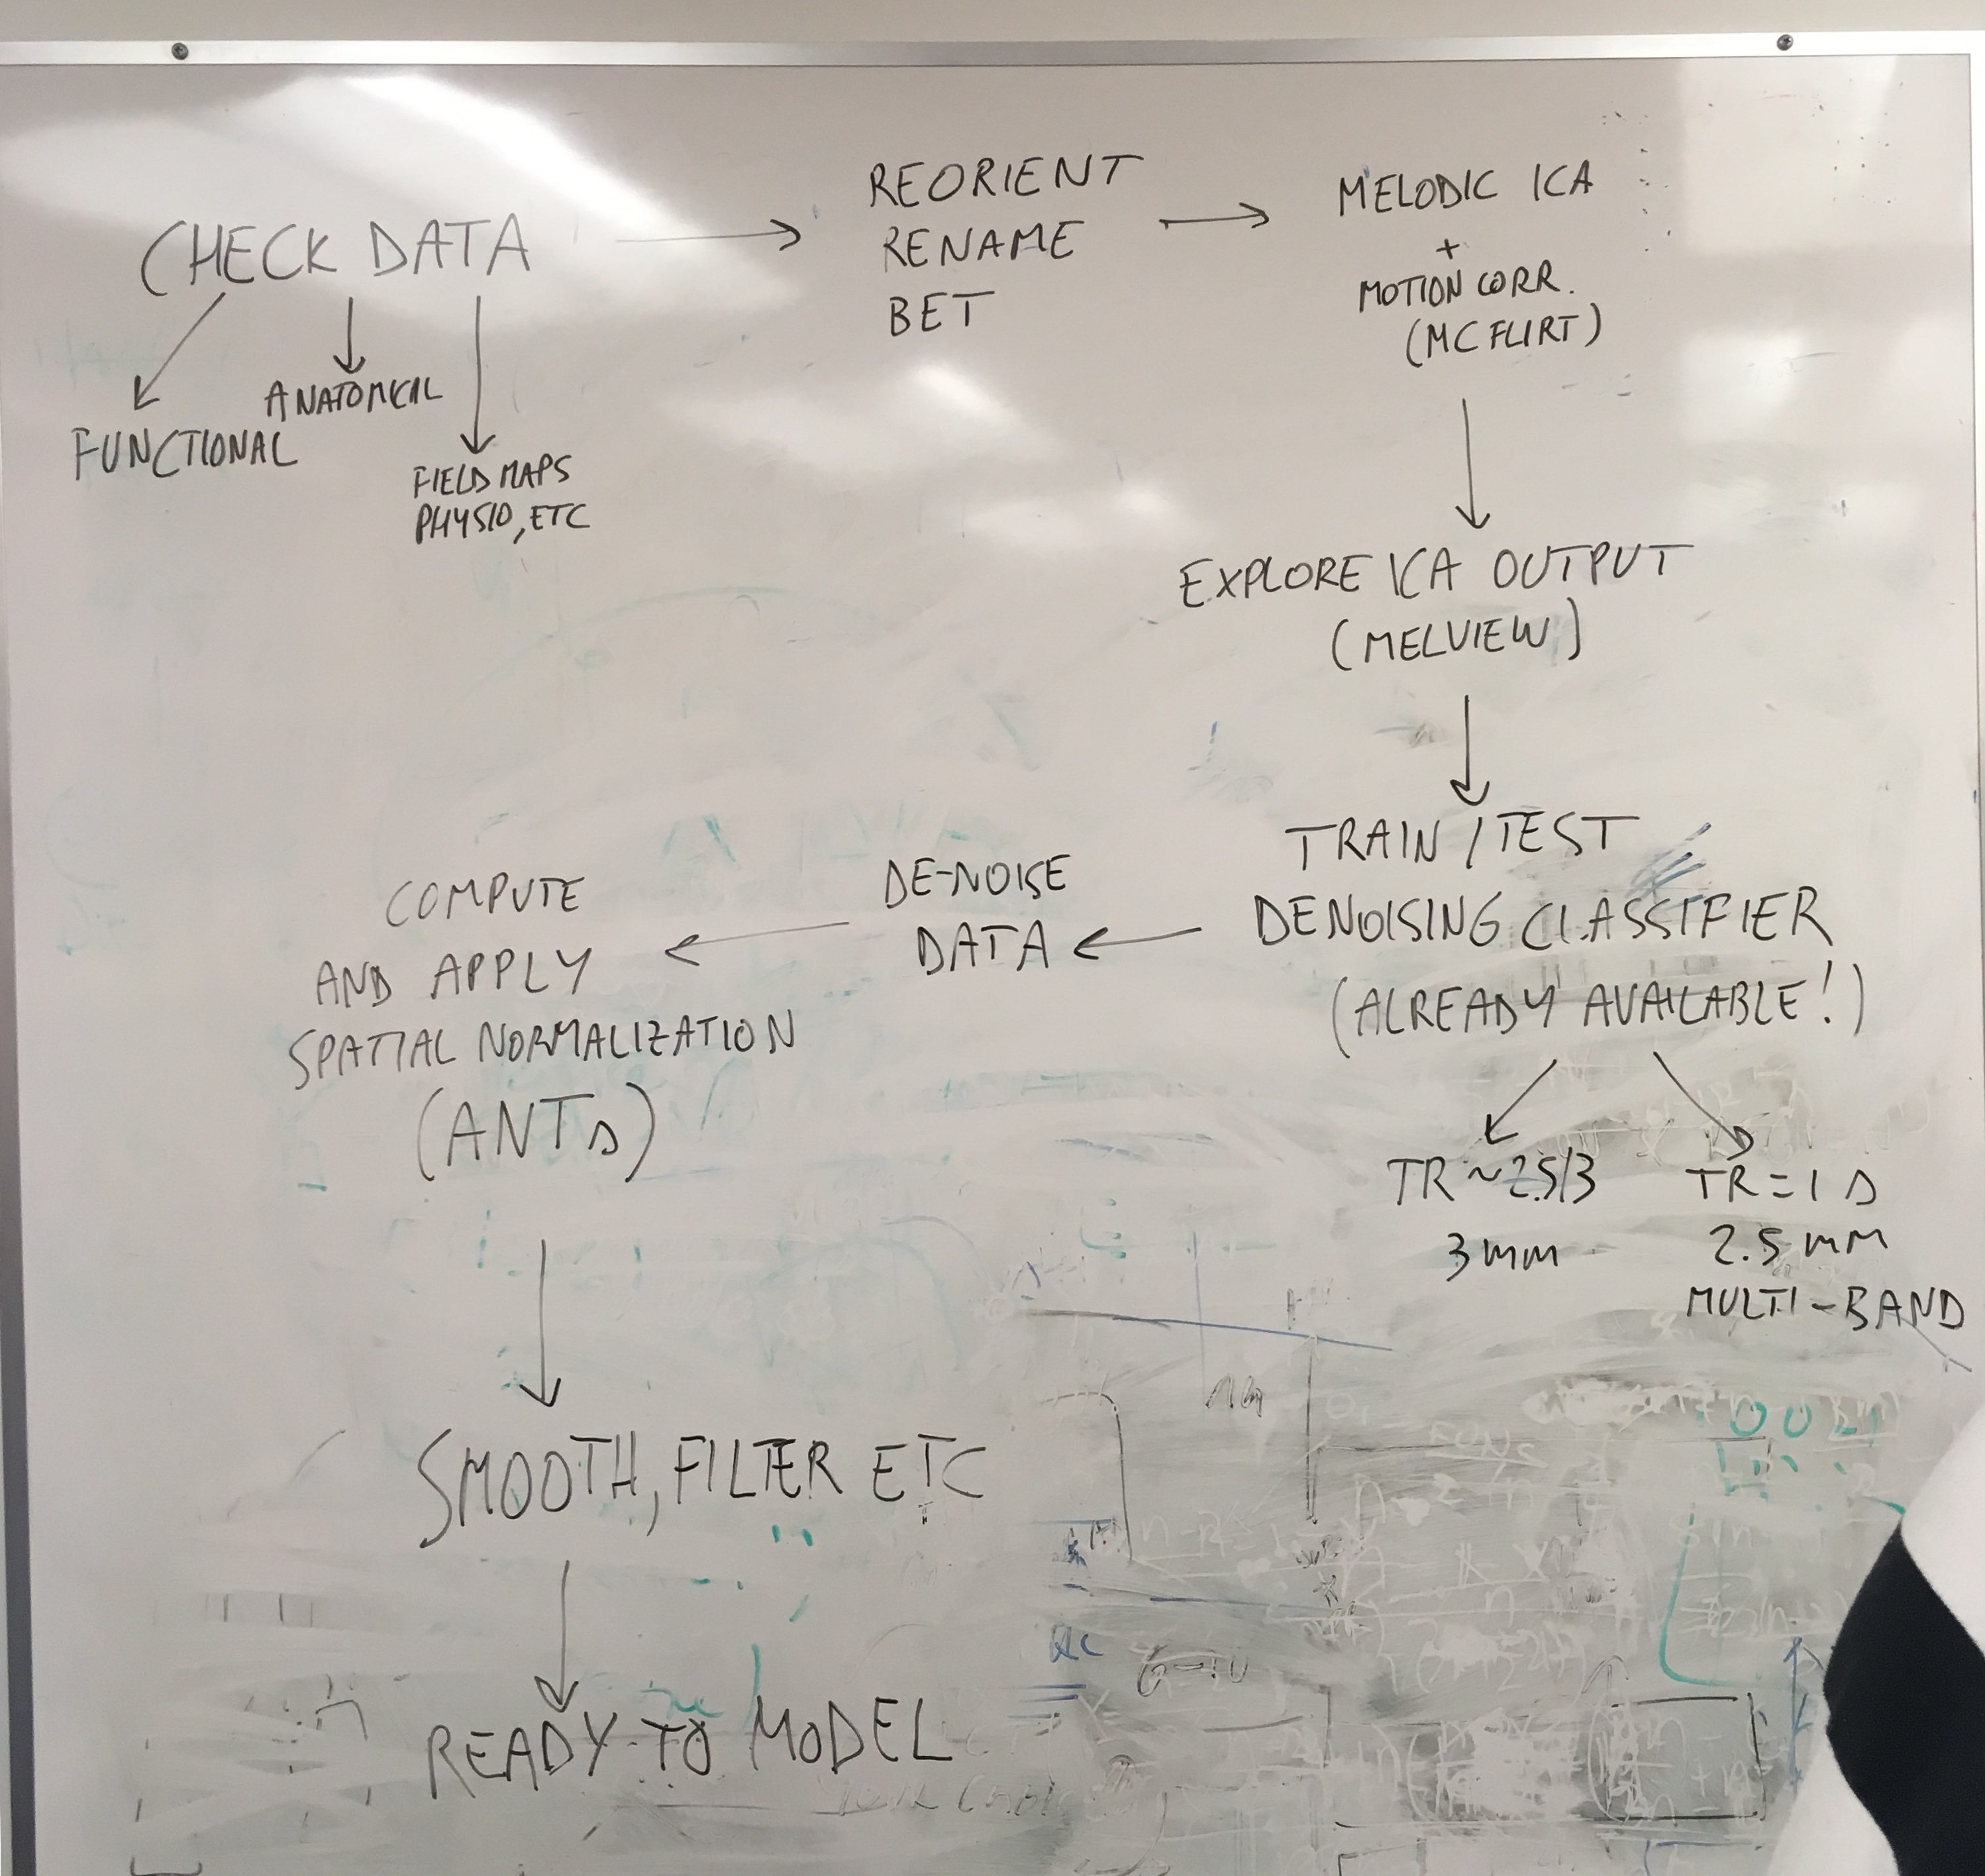 CHECK DATA
FUNCTIONAL
ANATOMICAL
FIELD MAPS
PHYSIO, ETC
REORIENT
RENAME
BET
MELODIC ICA
+
MOTION CORR.
(MCFLIRT)
EXPLORE ICA OUTPUT
(MELVIEW)
TRAIN / TEST
DENOISING CLASSIFIER
(ALREADY AVAILABLE!)
TR ~2.5/3
3 mm
TR = 1 s
2.5 mm
MULTI-BAND
DE-NOISE
DATA
COMPUTE
AND APPLY
SPATIAL NORMALIZATION
(ANTs)
SMOOTH, FILTER ETC
READY TO MODEL